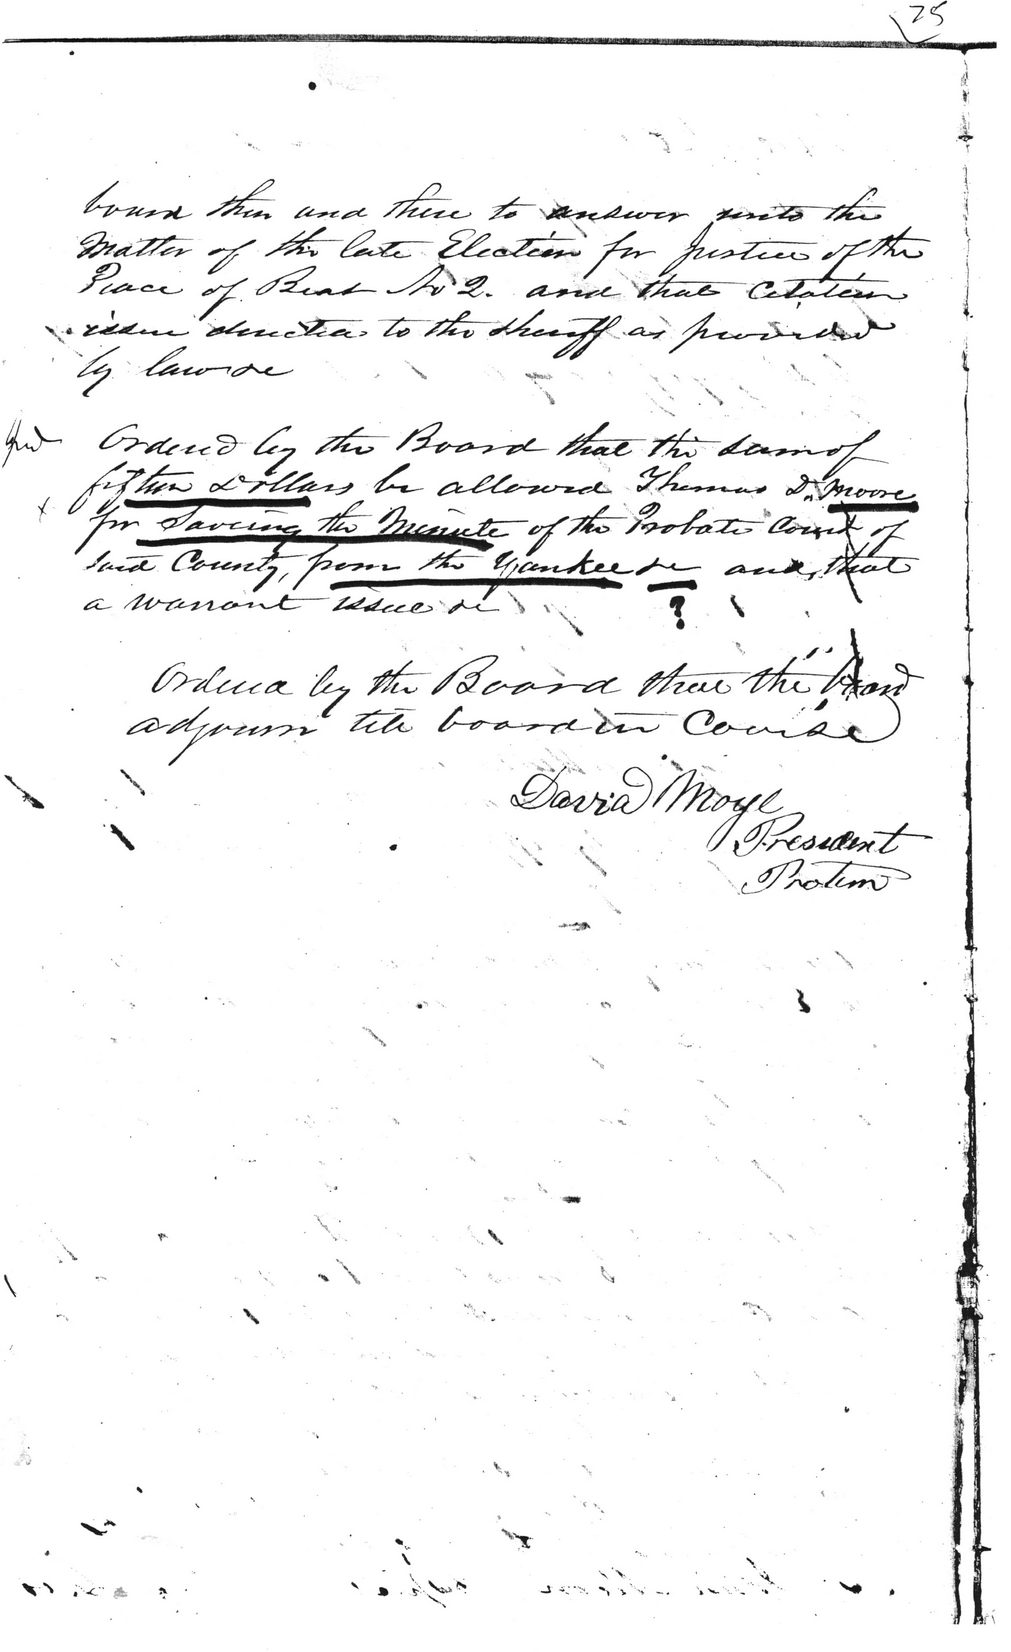 75
board then and there to answer unto the
Matter of the late Election for Justice of the
Peace of Beat No 2. and that Citation
issue directed to the Sheriff as provided
by law &c
Ordered by the Board that the sum of
fifteen Dollars be allowed Thomas D. Moore
for Saveing the Minute of the Probate Court of
said County, from the Yankee &c and, that
a warrant issue &c
?
Ordered by the Board that the board
adjourn till board in Course
David Moye
President
Protem